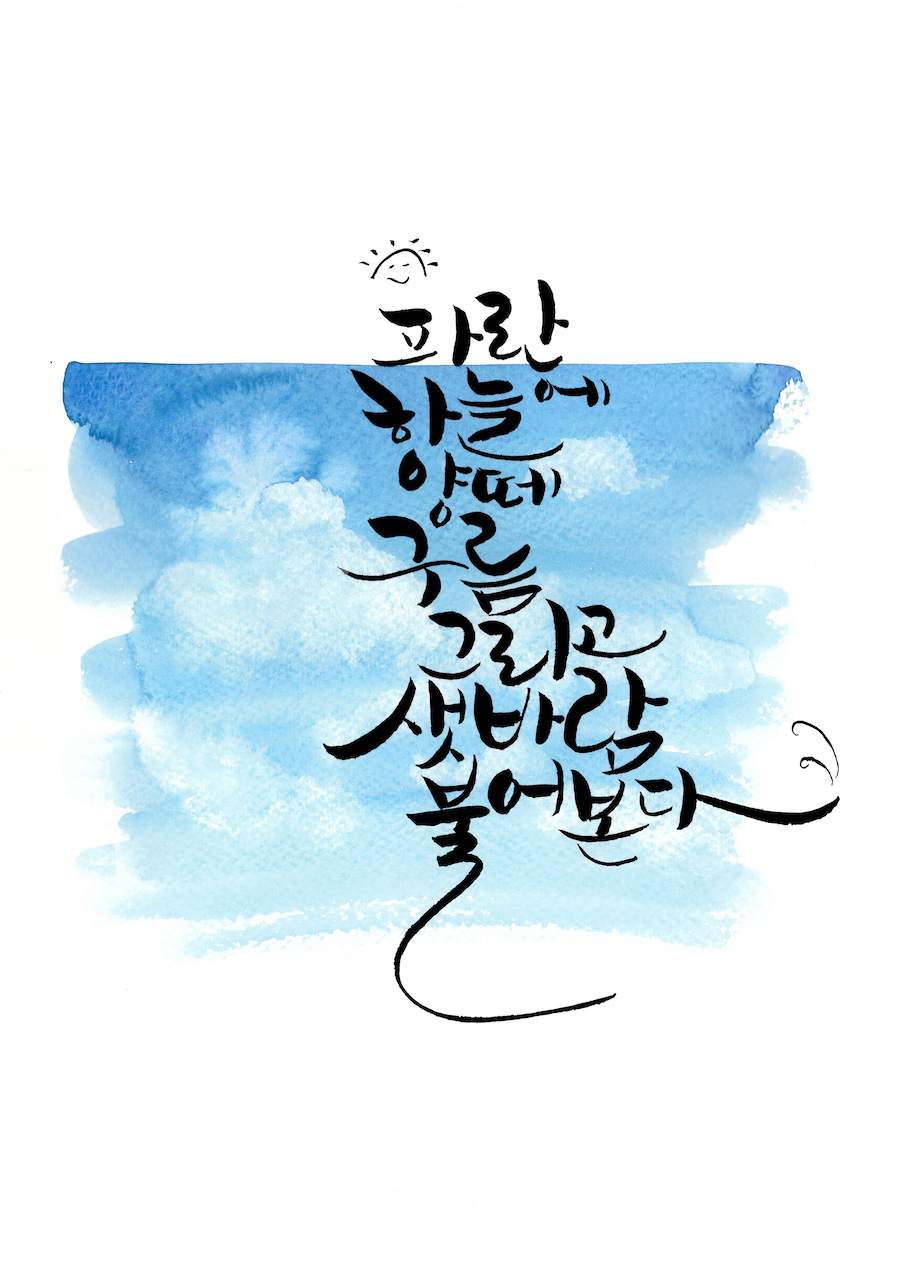 파란
하늘에
양떼
구름
그리고
샛바람
불어본다